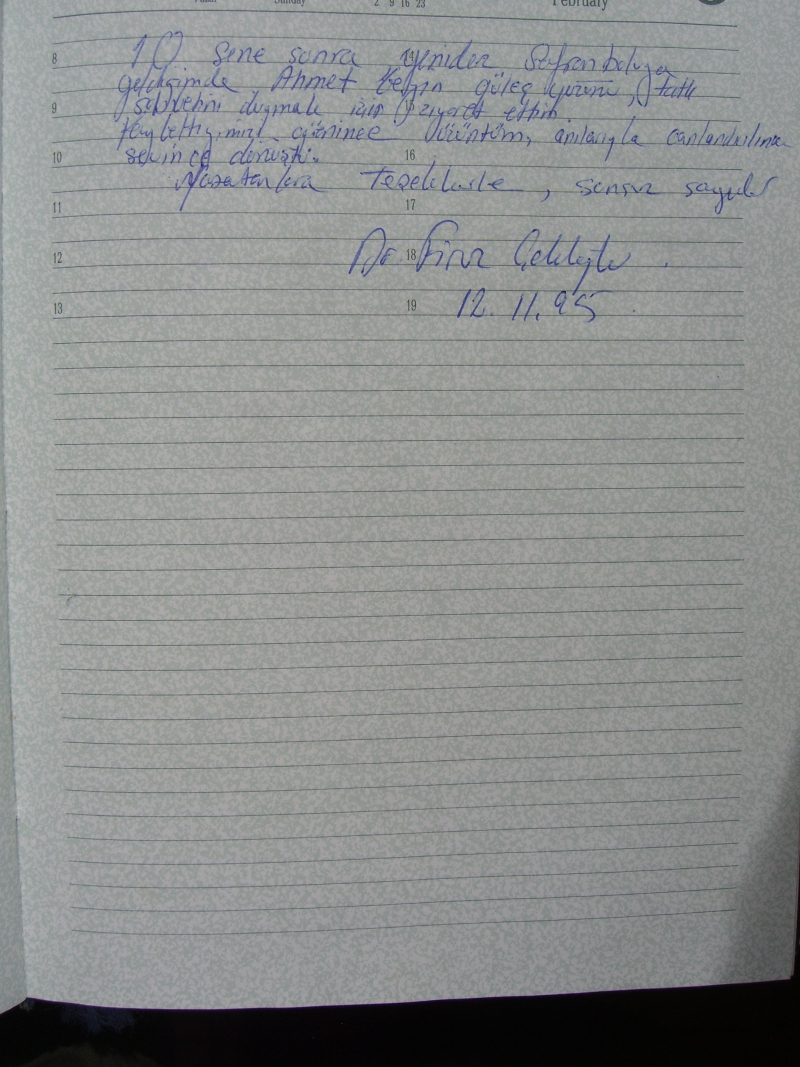 Sunday 2 9 16 23 February
8 10 sene sonra yeniden Safranbolu'ya
geldiğimde Ahmet Beyin güleç yüzünü, tatlı
9 sohbetini duymak için ziyaret ettim.
Kaybettiğimizi görünce üzüntüm, anılarıyla canlandırılınca
10 sevince dönüştü. 16
Yaşatanlara teşekkürle, sonsuz saygılar
11 17
12 Dr 18
13 19 12.11.95